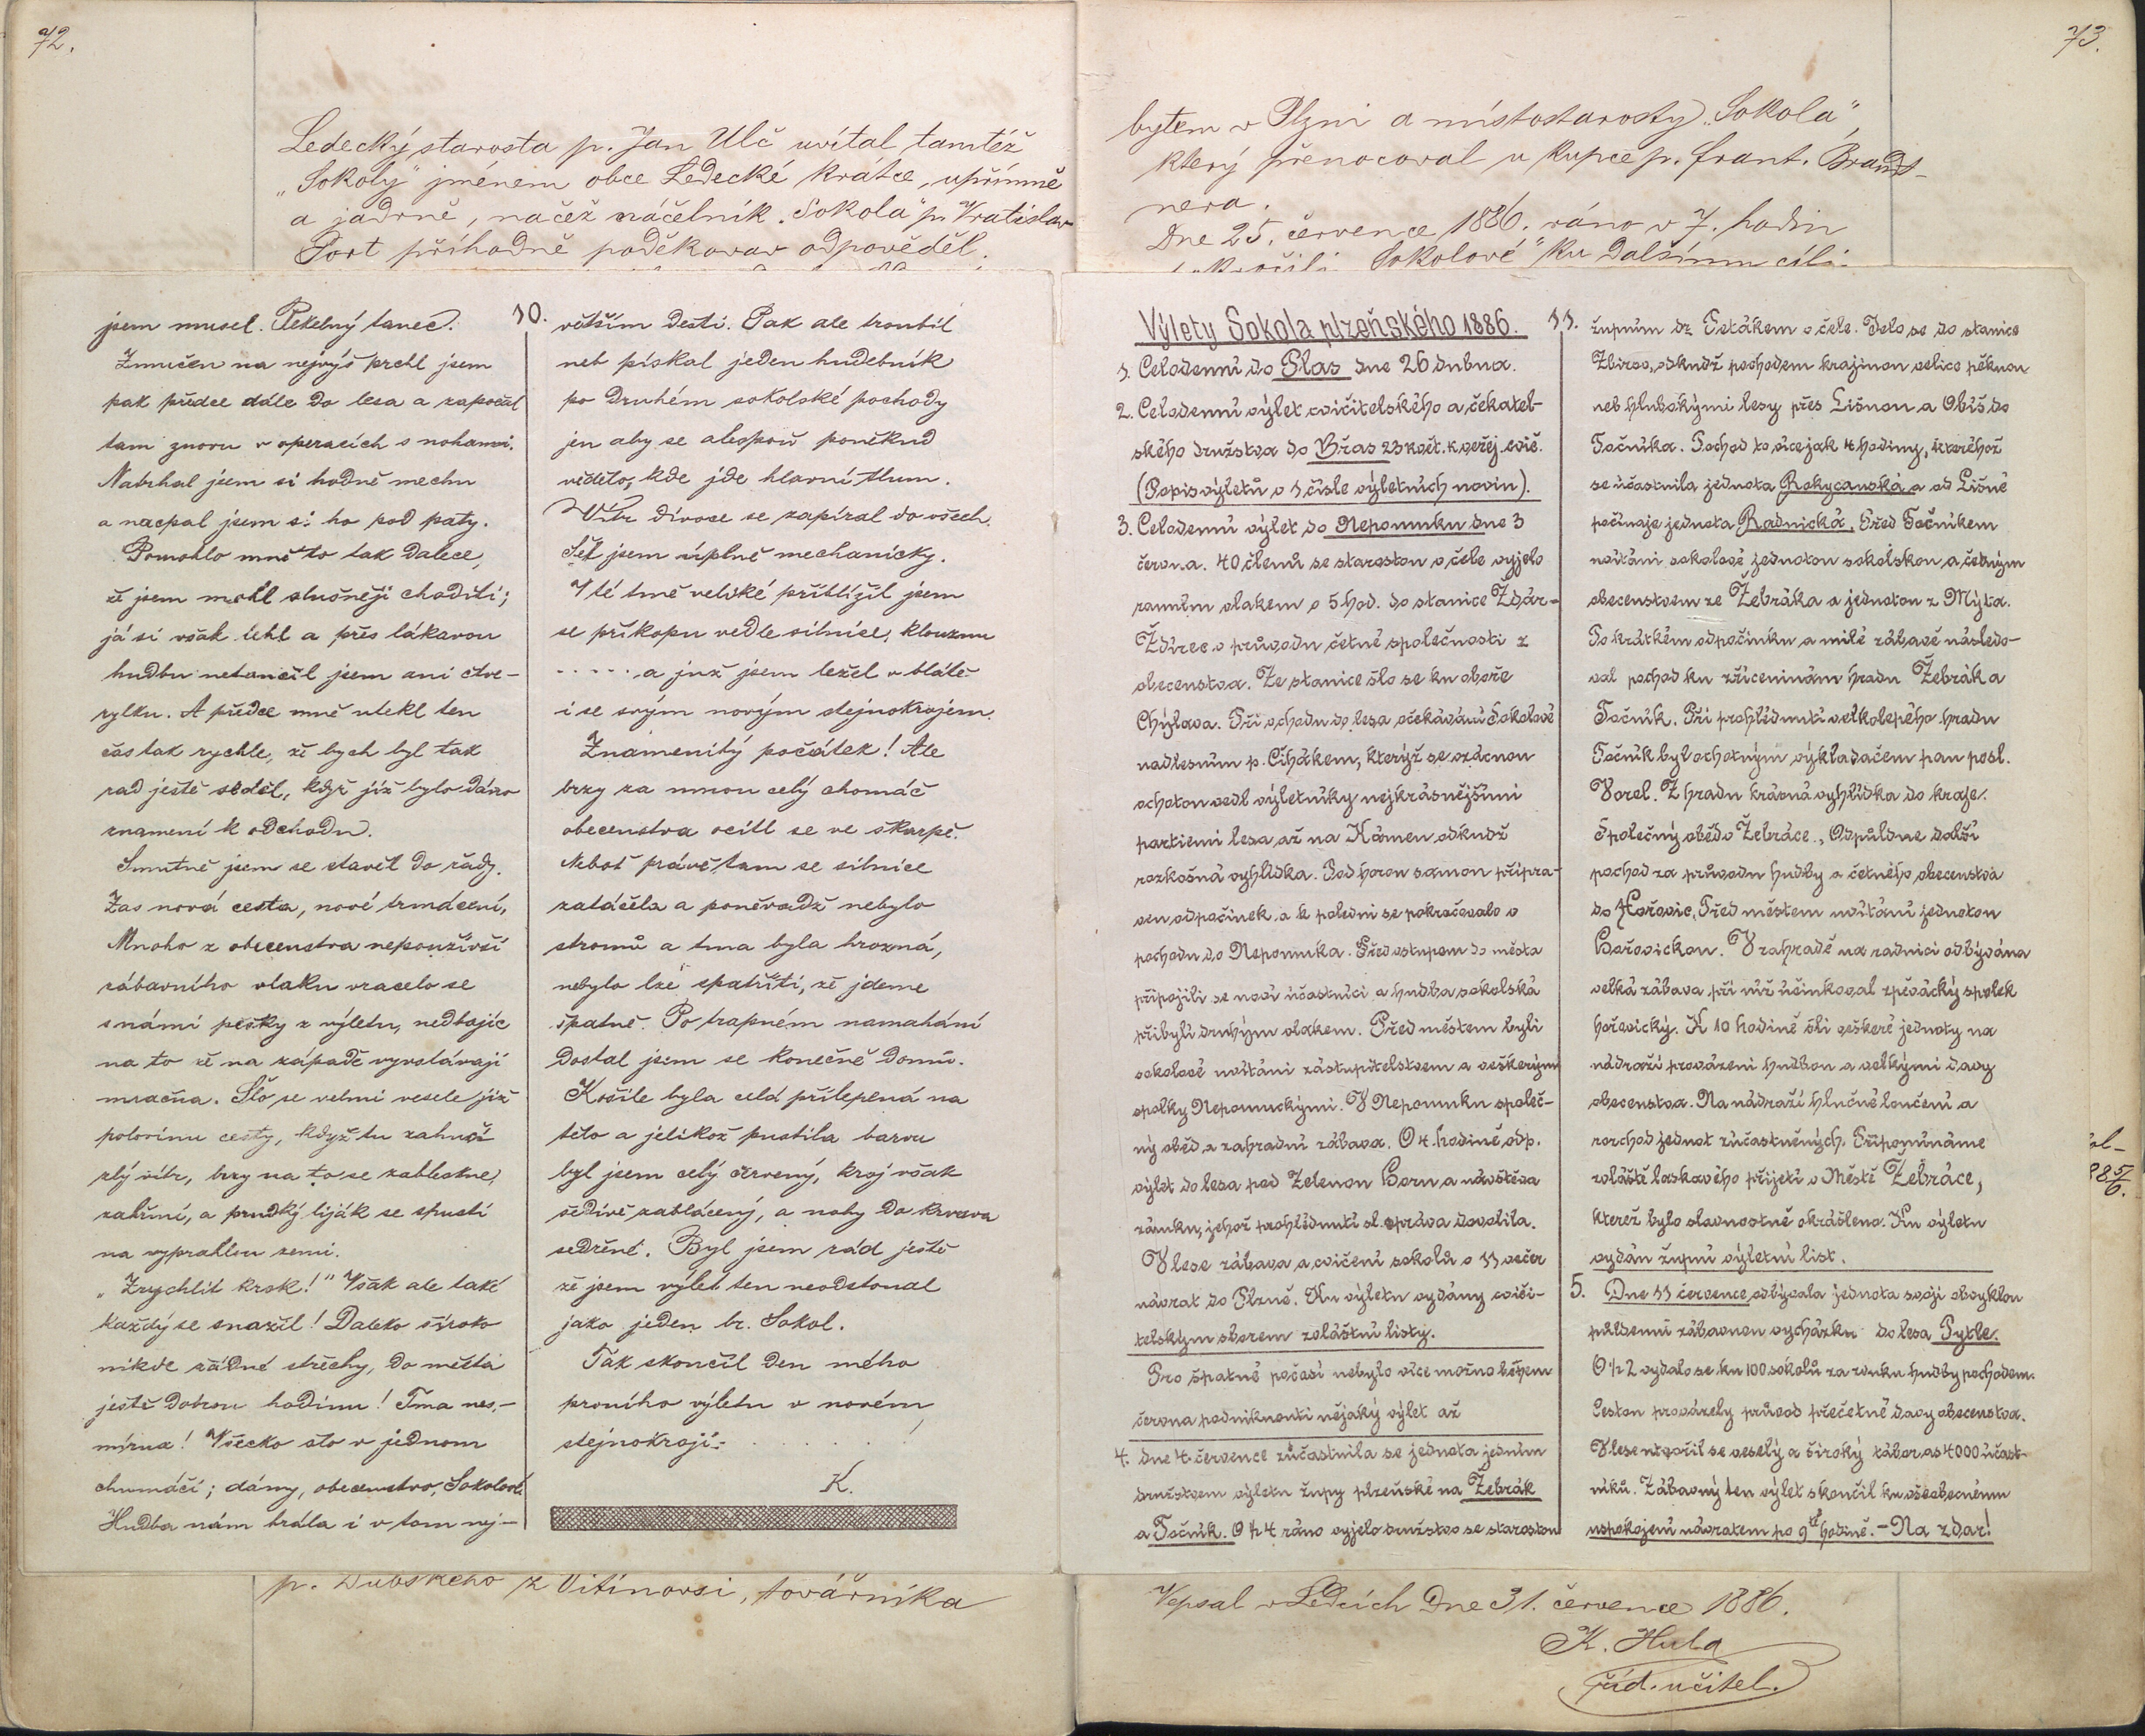 72.
Ledecký starosta p. Jan Ulč uvítal tamtéž
„Sokoly" jménem obce Ledecké krátce, upřímně
a jadrně, načež náčelník „Sokola" p. Vratislav
Port příhodně poděkovav odpověděl.
10.
jsem musel. Pekelný tanec.
Zmučen na nejvýš prchl jsem
pak předce dále do lesa a započal
tam znovu v operacích s nohami.
Natrhal jsem si hodně mechu
a nacpal jsem si ho pod paty.
Pomohlo mně to tak dalece,
že jsem mohl slušněji choditi;
já si však lehl a přes lákavou
hudbu netančil jsem ani čtve-
rylku. A předce mně utekl ten
čas tak rychle, že bych byl tak
rad ještě seděl, když již bylo dáno
znamení k odchodu.
Smutně jsem se stavěl do řady.
Zas nová cesta, nové trmácení,
Mnoho z obecenstva nepoužívší
zábavního vlaku vracelo se
s námi pěšky z výletu, nedbajíc
na to že na západě vyvstávají
mračna. Šlo se velmi vesele již
polovinu cesty, když tu zahučí
zlý vítr, brzy na to se zableskne,
zahřmí, a prudký liják se spustí
na vyprahlou zemi.
„Zrychlit krok!" Však ale také
každý se snažil! Daleko široko
nikde žádné střechy, do města
ještě dobrou hodinu! Tma nes,-
mírná! Všecko šlo v jednom
chumáči; dámy, obecenstvo, Sokolové
Hudba nám hrála i v tom nej-
větším dešti. Pak ale troubil
neb pískal jeden hudebník
po druhém sokolské pochody
jen aby se alespoň poněkud
vědělo, kde jde hlavní tlum.
Vítr divoce se zapíral do všech.
Šel jsem úplně mechanicky.
V té tmě veliké přiblížil jsem
se příkopu vedle silnice, klouznu
. . . . . a již jsem ležel v blátě
i se svým novým stejnokrojem.
Znamenitý počátek! Ale
brzy za mnou celý chomáč
obecenstva ocitl se ve škarpě.
Neboť právě tam se silnice
zatáčela a poněvadž nebylo
stromů a tma byla hrozná,
nebylo lze spatřiti, že jdeme
špatně. Po trapném namahání
dostal jsem se konečně domů.
Košile byla celá přilepená na
tělo a jelikož pustila barvu
byl jsem celý červený, kroj však
šedivě zablácený, a nohy do krvava
sedřené. Byl jsem rád ještě
že jsem výlet ten neodstonal
jako jeden br. Sokol.
Tak skončil den mého
prvního výletu v novém
stejnokroji. . . . . . !
K.
p. Dubského z Vitinovsi, továrníka
73.
bytem v Plzni a místostarosty „Sokola",
který přenocoval u kupce p. Frant. Brand-
nera.
Dne 25. července 1886. ráno v 7. hodin
Sokolové" ku dalšímu cíli.
11.
Výlety Sokola plzeňského 1886.
1. Celodenní do Plas dne 26 dubna.
2. Celodenní výlet cvičitelského a čekatel-
ského družstva do Břas 23 květ. k veřej. cvič.
(Popis výletů v 1 čísle výletních novin).
3. Celodenní výlet do Nepomuku dne 3
června. 40 členů se starostou v čele vyjelo
ranním vlakem o 5 hod. do stanice Ždár-
Ždírec v průvodu četné společnosti z
obecenstva. Ze stanice šlo se ku oboře
Chýlava. Při vchodu do lesa očekáváni Sokolové
nadlesním p. Čihákem, kterýž se vzácnou
ochotou vedl výletníky nejkrásnějšími
partiemi lesa až na Kámen odkudž
rozkošná vyhlídka. Pod horou samou připra-
ven odpočinek a k poledni se pokračovalo v
pochodu do Nepomuka. Před vstupem do města
připojili se noví účastníci a hudba sokolská
přibylí druhým vlakem. Před městem byli
sokolové uvítáni zástupitelstvem a veškerými
spolky Nepomuckými. V Nepomuku společ-
ný oběd a zahradní zábava. O 4. hodině odp.
výlet do lesa pod Zelenou Horu a návštěva
zámku, jehož prohlédnutí sl. správa dovolila.
V lese zábava a cvičení sokolů o 11 večer
návrat do Plzně. Ku výletu vydány cviči-
telským sborem zvláštní listy.
Pro špatné počasí nebylo více možno během
června podniknouti nějaký výlet až
4. dne 4. července zúčastnila se jednota jedním
družstvem výletu župy plzeňské na Žebrák
a Točník. O ½ 4 ráno vyjelo družstvo se starostou
župním dr Petákem v čele. Jelo se do stanice
Zbirov, odkudž pochodem krajinou velice pěknou
neb hlubokými lesy přes Lišnou a Obiš do
Točníka. Pochod to více jak 4 hodiny, kteréhož
se účastnila jednota Rokycanská a od Lišné
počínaje jednota Radnická. Před Točníkem
uvítáni sokolové jednotou sokolskou a četným
obecenstvem ze Žebráka a jednotou z Mýta.
Po krátkém odpočinku a milé zábavě následo-
val pochod ku zříceninám hradu Žebrák a
Točník. Při prohlédnutí velkolepého hradu
Točník byl ochotným vykladačem pan posl.
Vorel. Z hradu krásná vyhlídka do kraje.
Společný oběd v Žebráce., Odpůldne další
pochod za průvodu hudby a četného obecenstva
do Hořovic. Před městem uvítání jednotou
Hořovickou. V zahradě na radnici odbývána
velká zábava při níž účinkoval zpěvácký spolek
hořovický. K 10 hodině šli veškeré jednoty na
nádraží provázeni hudbou a velkými davy
obecenstva. Na nádraží hlučné loučení a
rozchod jednot zúčastněných. Připomínáme
zvláště laskavého přijetí v Městě Žebráce,
kteréž bylo slavnostně okrášleno. Ku výletu
vydán župní výletní list.
5. Dne 11 července odbývala jednota svoji obvyklou
půldenní zábavnou vycházku do lesa Pytle.
O ½ 2 vydalo se ku 100 sokolů za zvuku hudby pochodem.
Cestou provázely průvod přečetné davy obecenstva.
V lese utvořil se veselý a široký tábor as 4000 účast-
níků. Zábavný ten výlet skončil ku všeobecnému
uspokojení návratem po 9té hodině. - Na zdar!
Vepsal v Ledcích dne 31. července 1886.
K. Hula
říd. učitel.